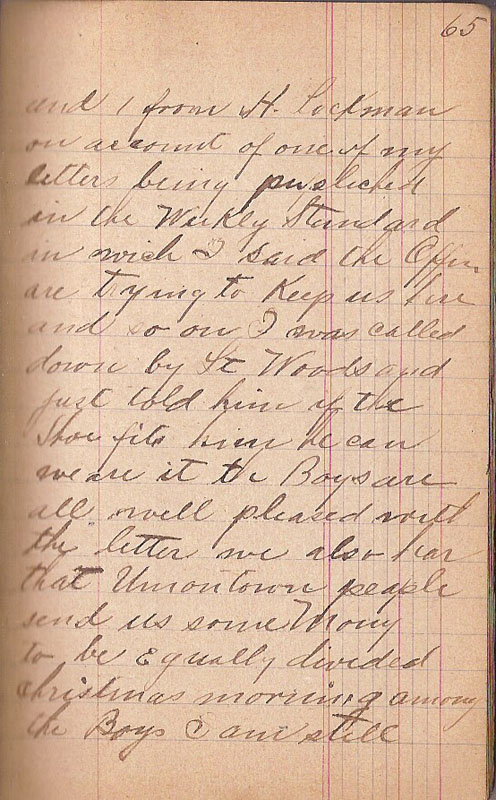 65
and 1 from H. Lockman
on account of one of my
letters being pupliched
in the Weekly Standard
in wich I said the Offin
are trying to Keep us here
and so on I was called
down by Lt Woods and
just told him if the
Shoe fits him he can
weare it the Boys are
all well pleased with
the letter we also hear
that Uniontown people
send us some Mony
to be Equally divided
Christmas morning among
the Boys I am still